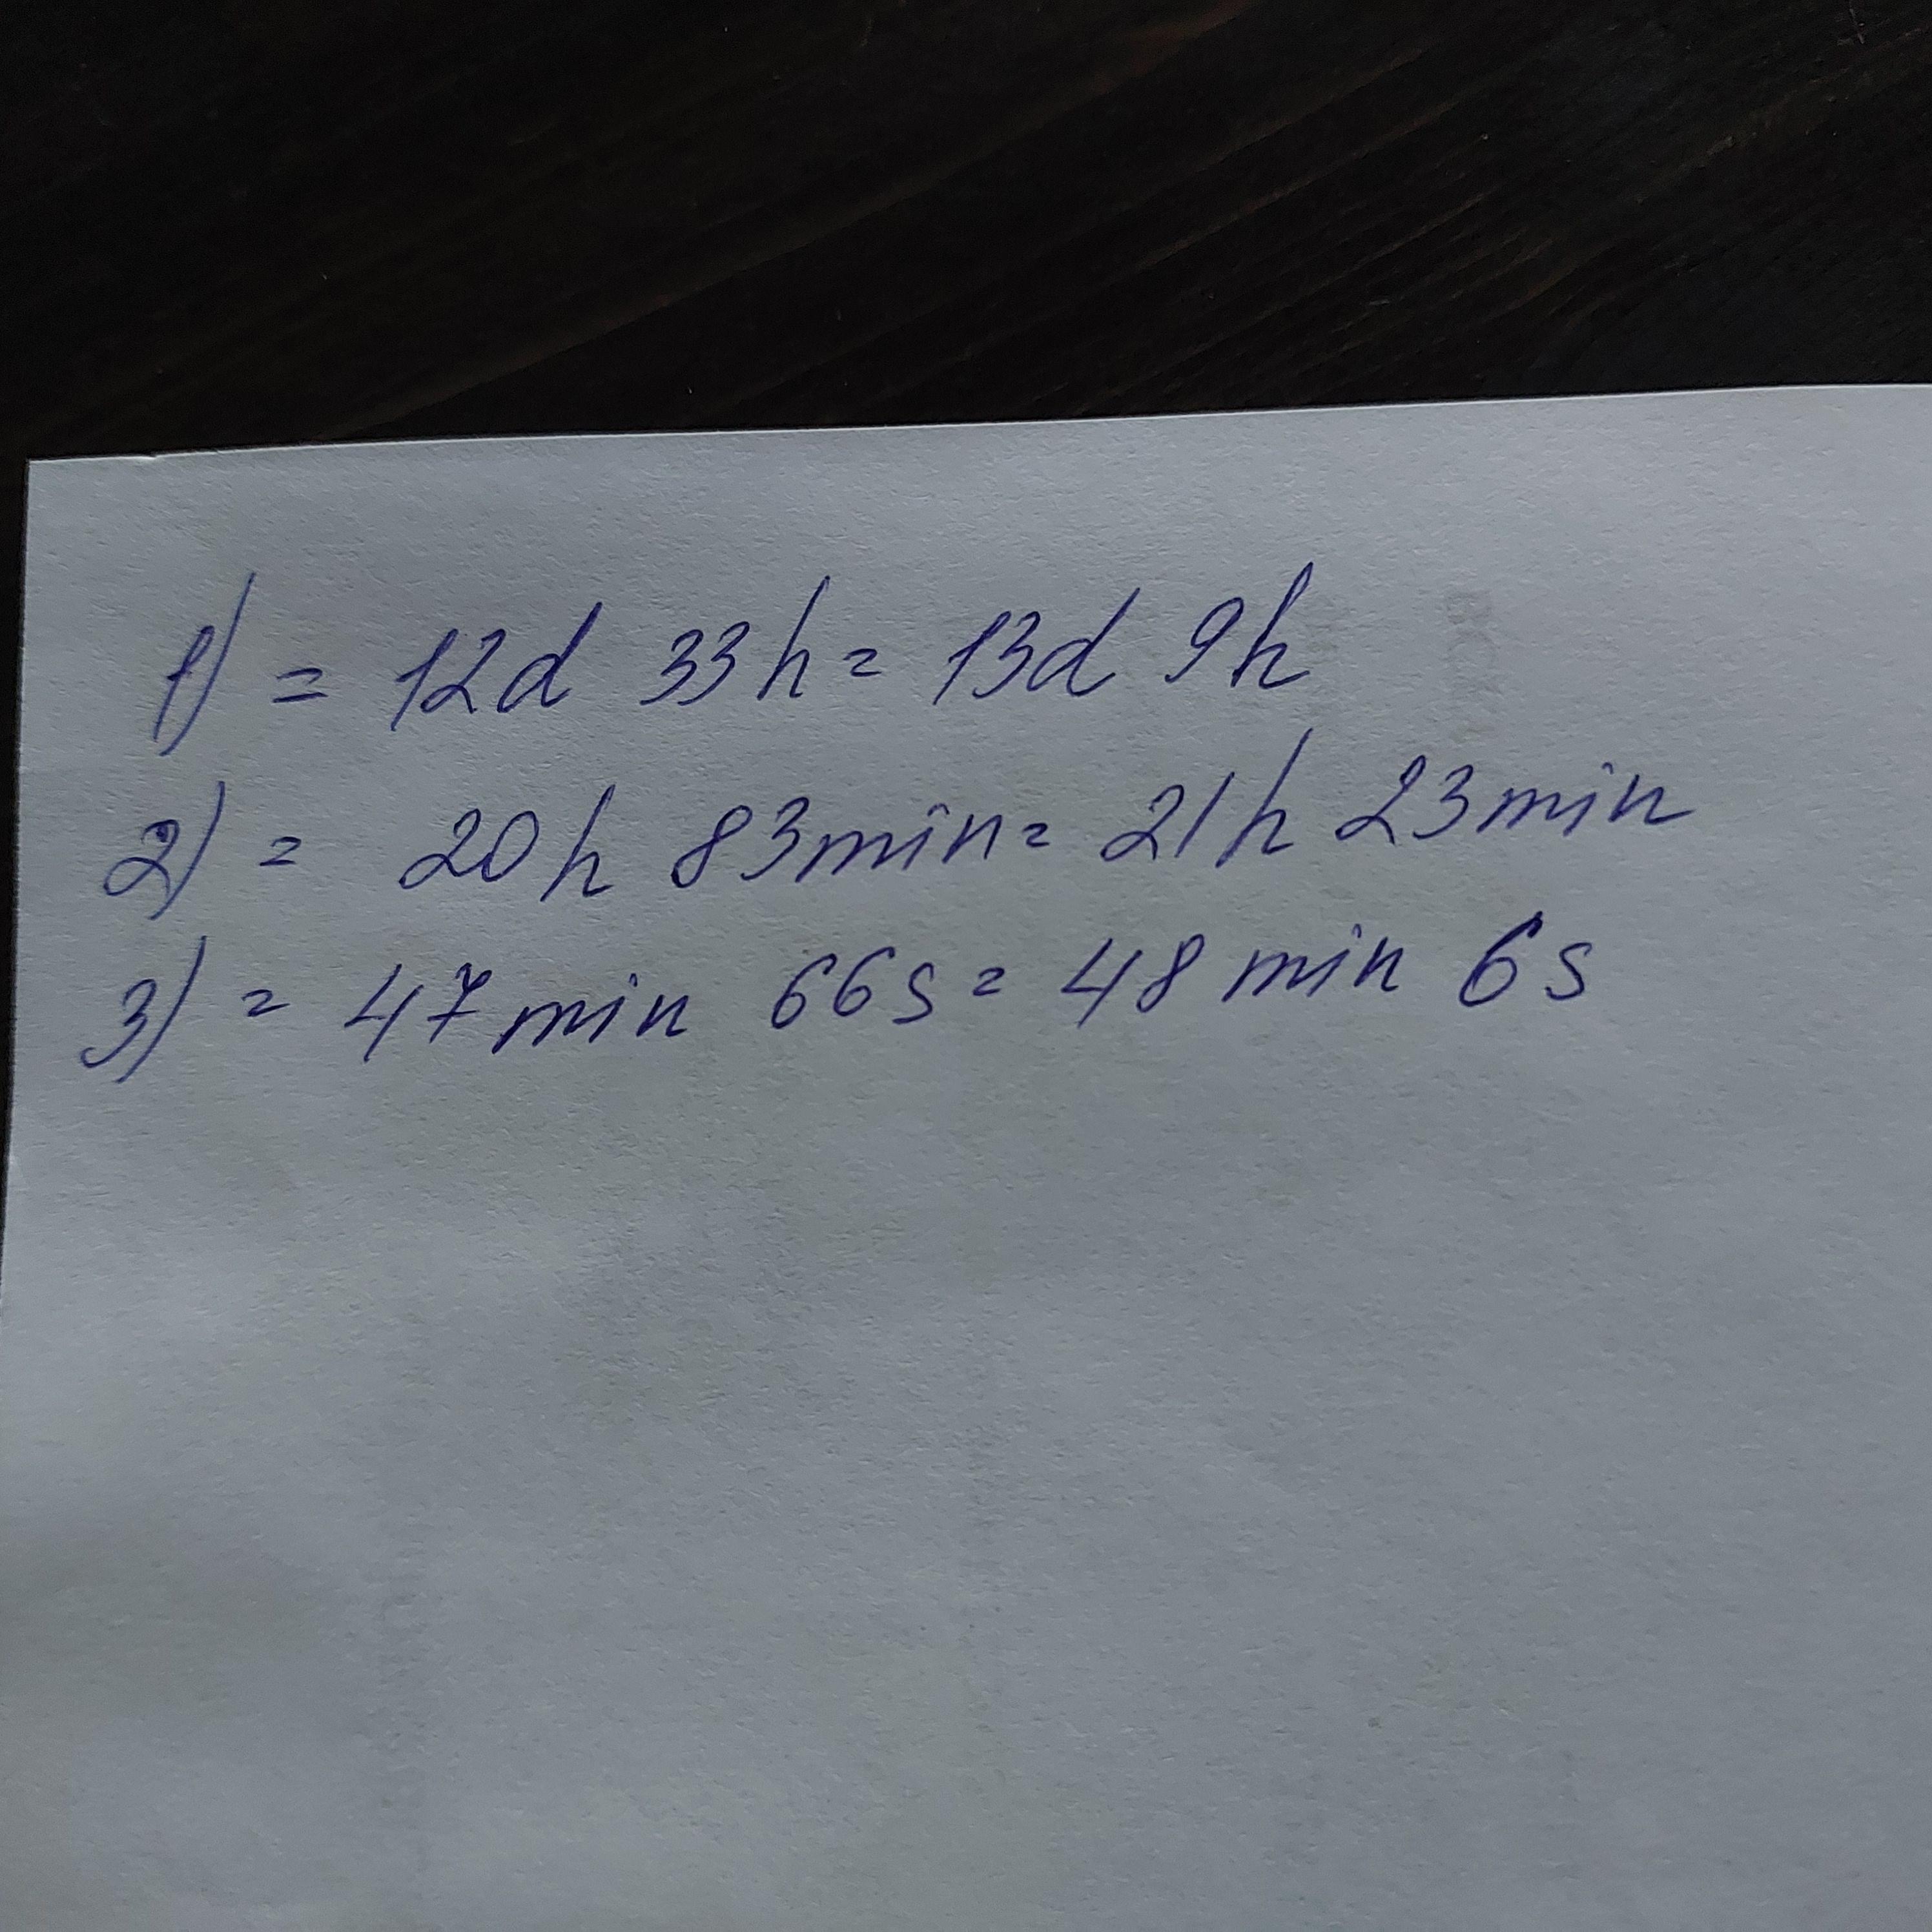 1) = 12d 33h = 13d 9h
2) = 20h 83min = 21h 23min
3) = 47min 66s = 48 min 6s